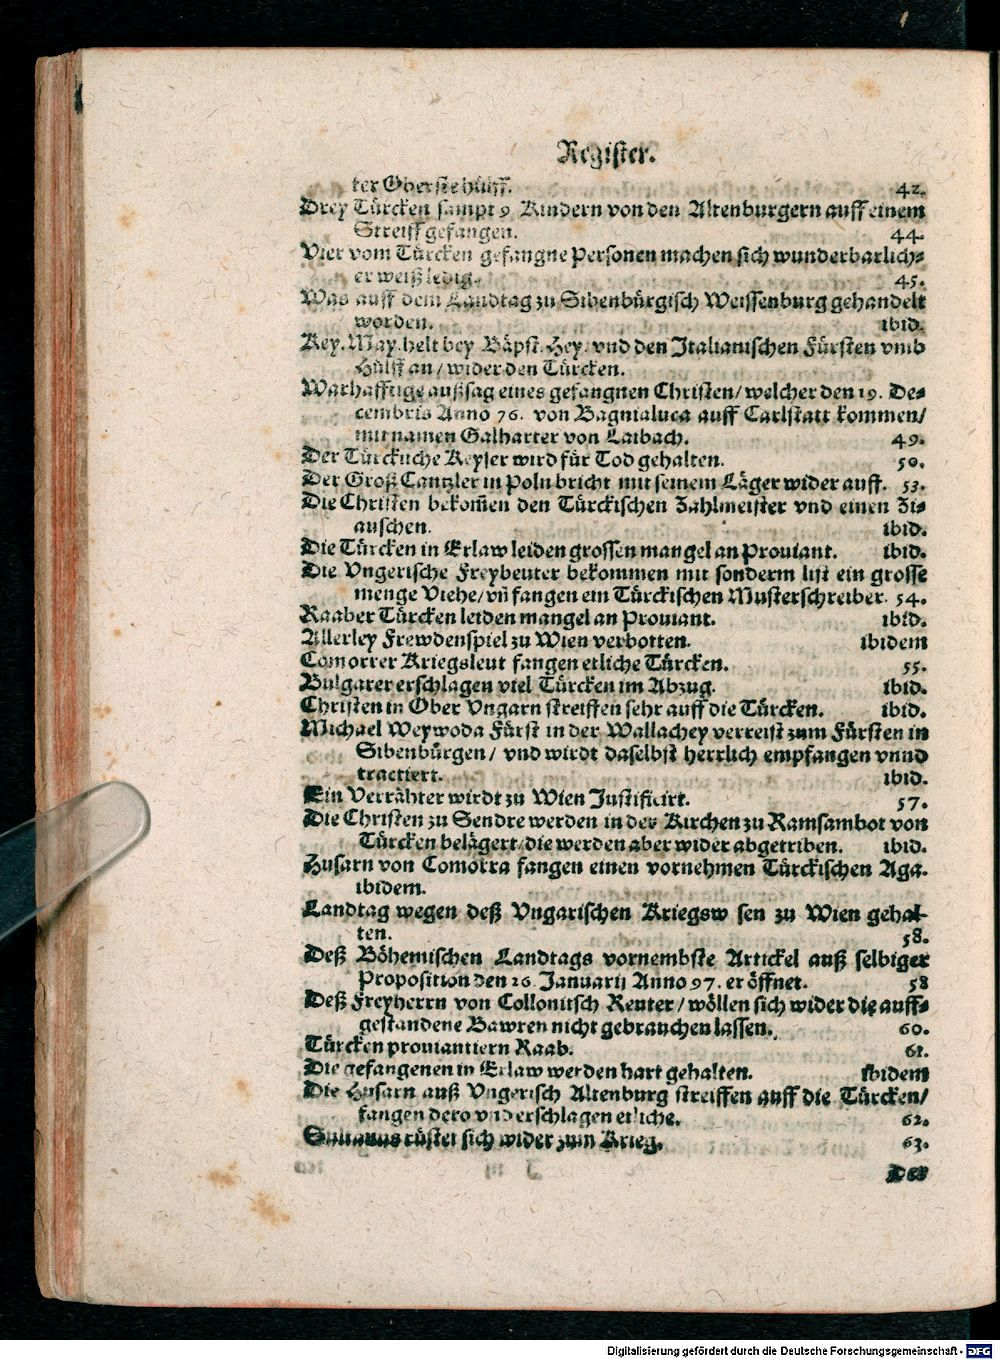 Register.
ter Oberste hülff. 42.
Drey Türcken sampt 9 Kindern von den Altenburgern auff einem
Streiff gefangen. 44.
Vier vom Türcken gefangne Personen machen sich wunderbarlich-
er weiß ledig. 45.
Was auff dem Landtag zu Sibenbürgisch Weissenburg gehandelt
worden. ibid.
Key. May. helt bey Bäpst. Hey. vnd den Italianischen Fürsten vmb
Hülff an / wider den Türcken.
Warhafftige außsag eines gefangnen Christen / welcher den 19. De-
cembris Anno 76. von Bagnialuca auff Carlstatt kommen /
mit namen Galharter von Laibach. 49.
Der Türckische Keyser wird für Tod gehalten. 50.
Der Groß Cantzler in Poln bricht mit seinem Läger wider auff. 53.
Die Christen bekom̃en den Türckischen Zahlmeister vnd einen Zi-
auschen. ibid.
Die Türcken in Erlaw leiden grossen mangel an Prouiant. ibid.
Die Vngerische Freybeuter bekommen mit sonderm list ein grosse
menge Viehe / vñ fangen ein Türckischen Musterschreiber. 54.
Raaber Türcken leiden mangel an Prouiant. ibid.
Allerley Frewdenspiel zu Wien verbotten. ibidem
Comorrer Kriegsleut fangen etliche Türcken. 55.
Bulgarer erschlagen viel Türcken im Abzug. ibid.
Christen in Ober Vngarn streiffen sehr auff die Türcken. ibid.
Michael Weywoda Fürst in der Wallachey verreist zum Fürsten in
Sibenbürgen / vnd wirdt daselbst herrlich empfangen vnnd
tractiert. ibid.
Ein Verrähter wirdt zu Wien Justificirt. 57.
Die Christen zu Sendre werden in der Kirchen zu Ramsambot von
Türcken belägert / die werden aber wider abgetriben. ibid.
Husarn von Comorra fangen einen vornehmen Türckischen Aga.
ibidem.
Landtag wegen deß Vngarischen Kriegsw sen zu Wien gehal-
ten. 58.
Deß Böhemischen Landtags vornembste Artickel auß selbiger
Proposition den 26. Januarij Anno 97. eröffnet. 58
Deß Freyherrn von Collonitsch Reuter / wöllen sich wider die auff-
gestandene Bawren nicht gebrauchen lassen. 60.
Türcken prouiantiern Raab. 61.
Die gefangenen in Erlaw werden hart gehalten. ibidem
Die Husarn auß Vngerisch Altenburg streiffen auff die Türcken /
fangen dero vnd erschlagen etliche. 62.
Sultanus rüstet sich wider zum Krieg. 63.
Der
Digitalisierung gefördert durch die Deutsche Forschungsgemeinschaft - DFG